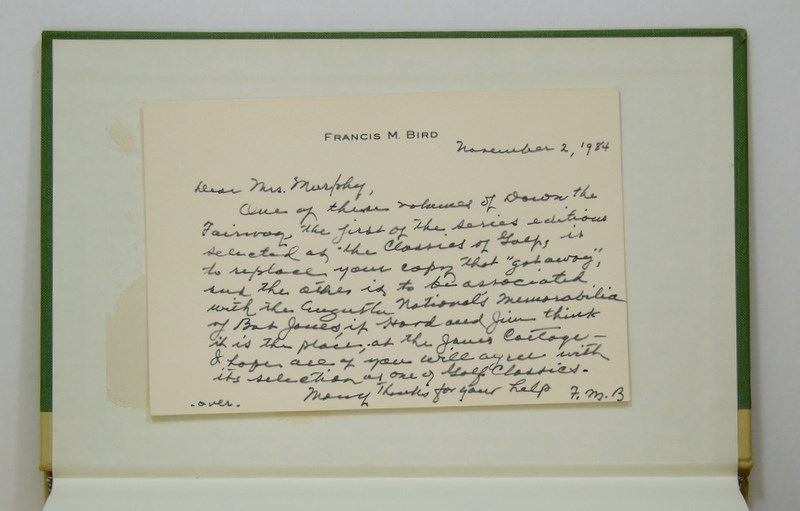 FRANCIS M. BIRD
November 2, '984
Dear Mrs. Murphy,
One of these volumes of Down the
Fairway, the first of the series editions
selected as "the Classics of Golf", is
to replace your copy that "got away",
and the other is to be associated
with the Augusta National's Memorabilia
of Bob Jones, if Hord and Jim think
it is the place, at the Jones Cottage -
I hope all of you will agree with
its selection as one of Golf Classics.
Many Thanks for your help F. M. B
- over -